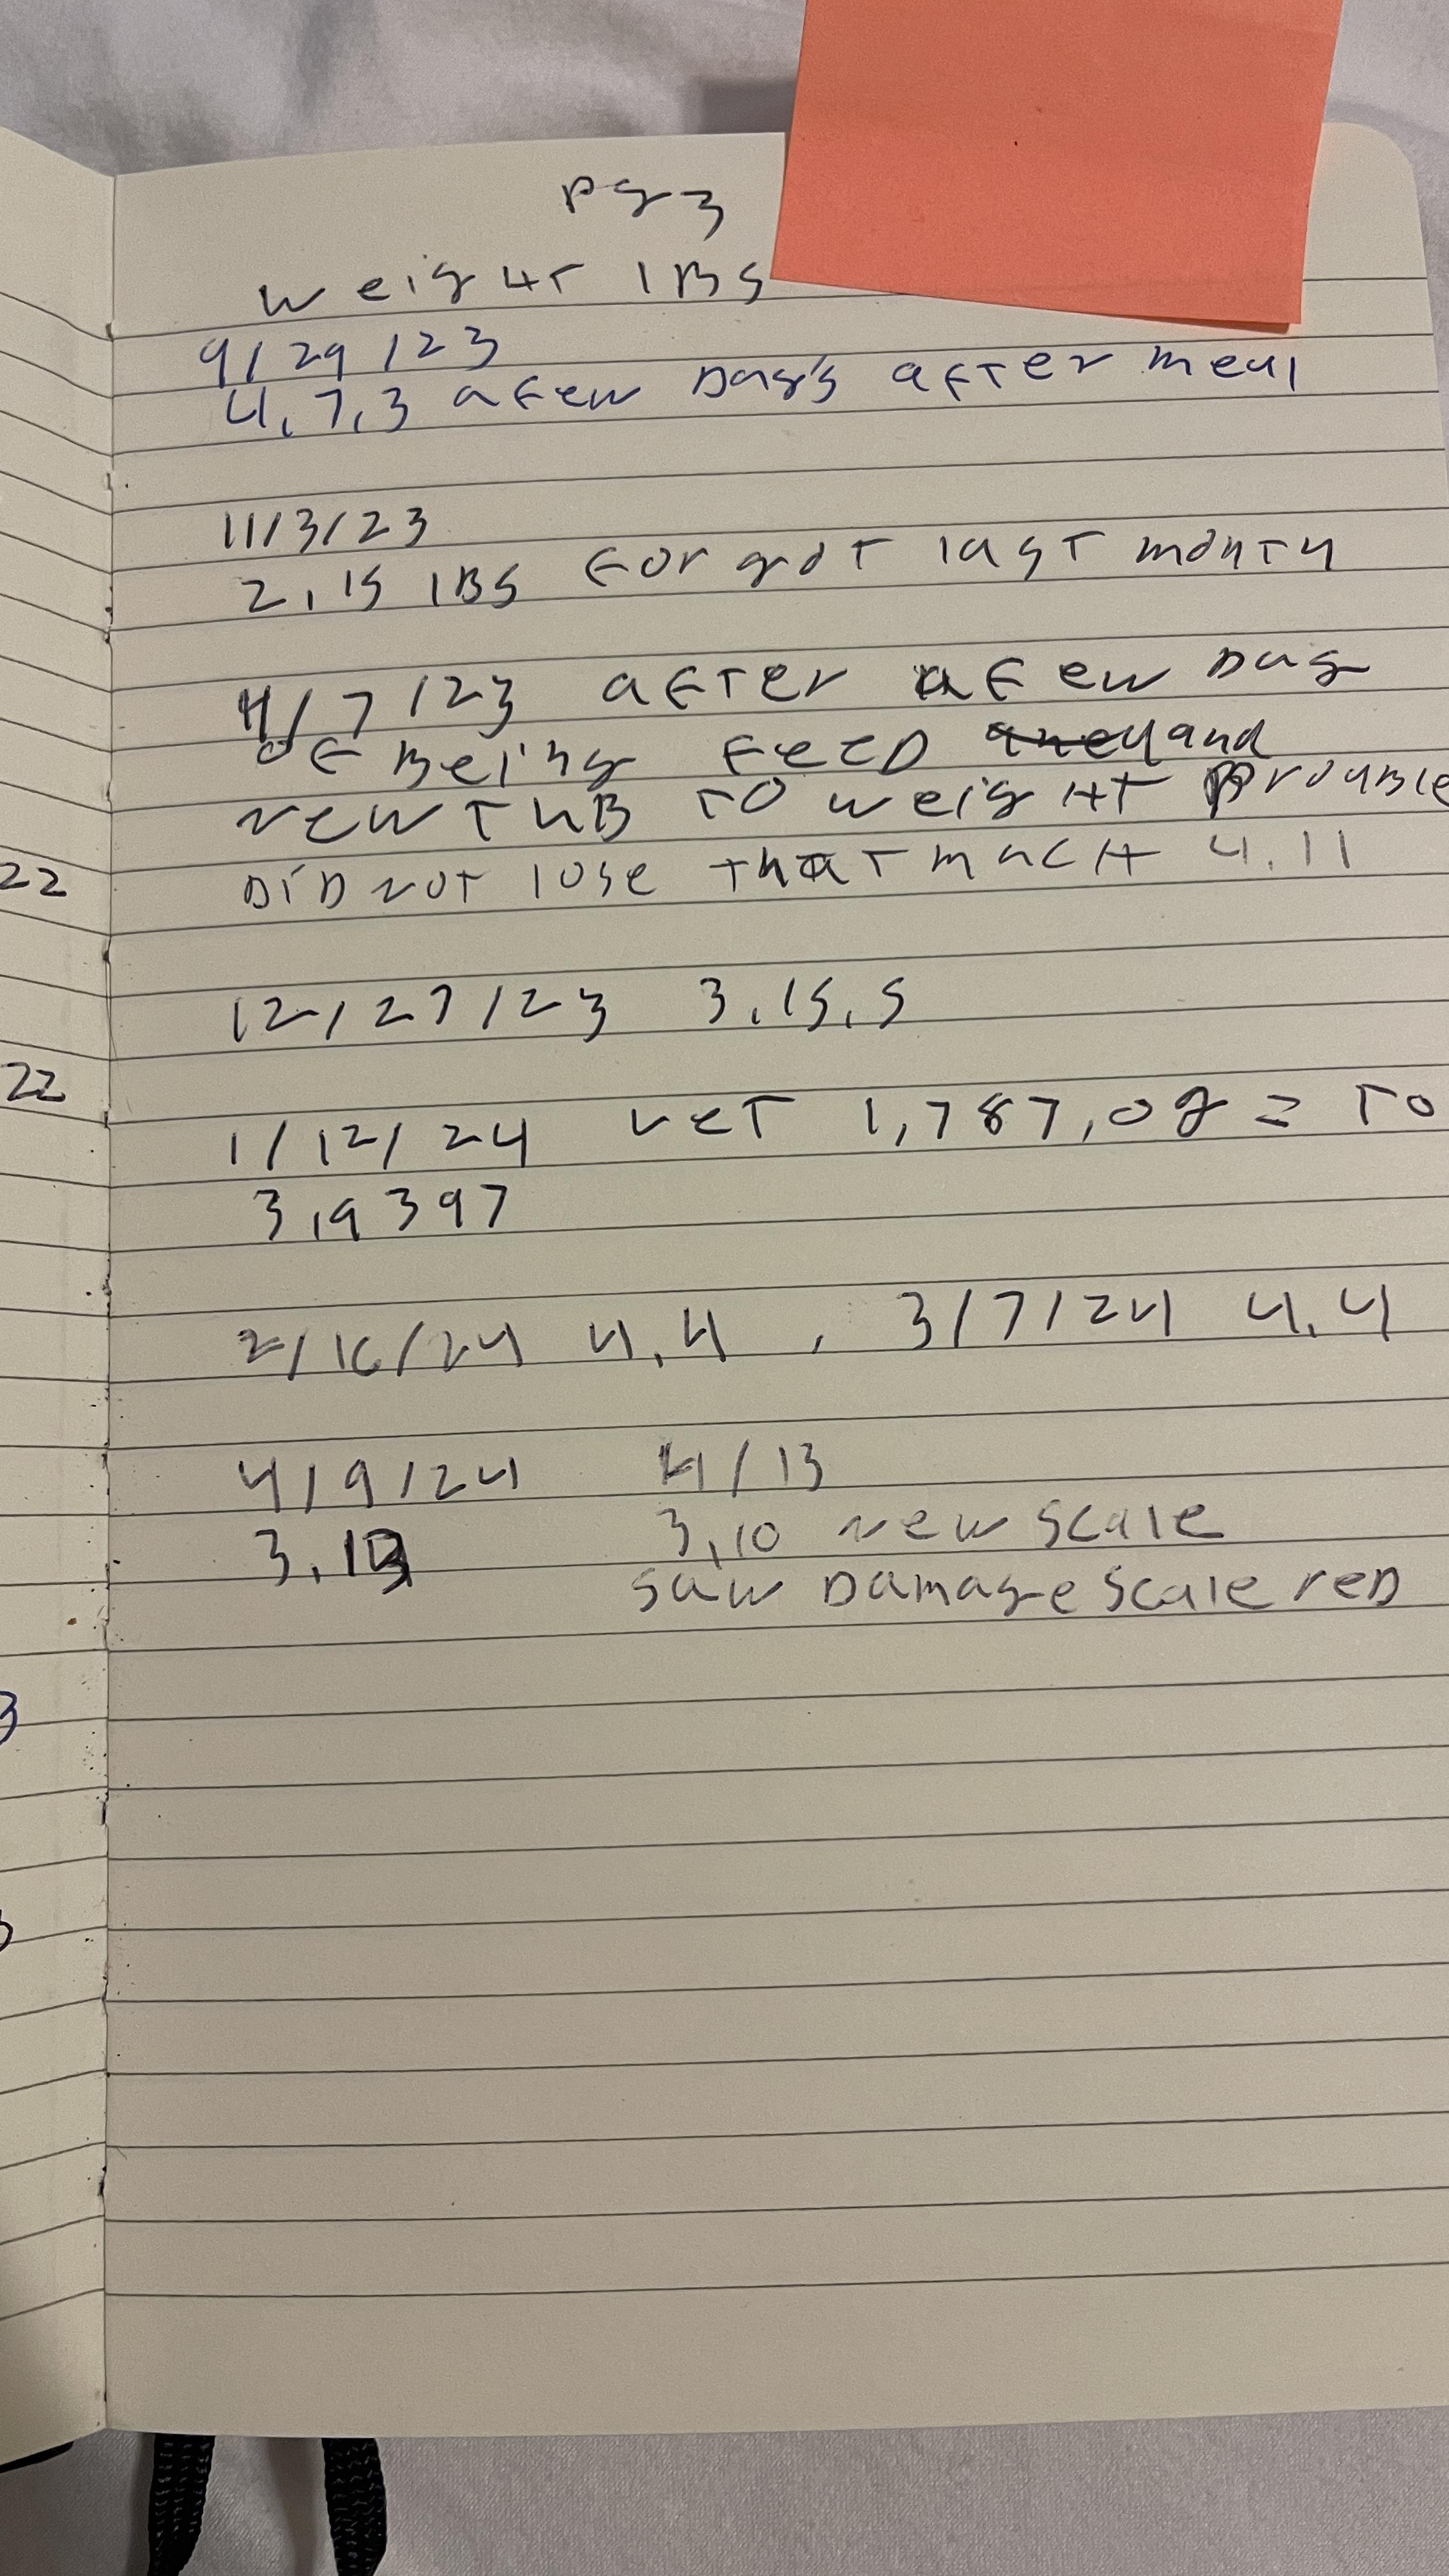 pg 3
weight lBS
9/29/23
4,7,3 a few Days after meal
11/3/23
2,15 lBS forgot last month
11/7/23 after a few Day
of Being feed and
new TuB to weight ProuBle
DiD not lose that mach 4.11
12/27/23 3,15,5
1/12/24 vet 1,787,0g = to
3,9397
2/16/24 4,4 , 3/7/24 4,4
4/9/24 4/13
3,10 new scale
saw Damage scale reD
22
22
3